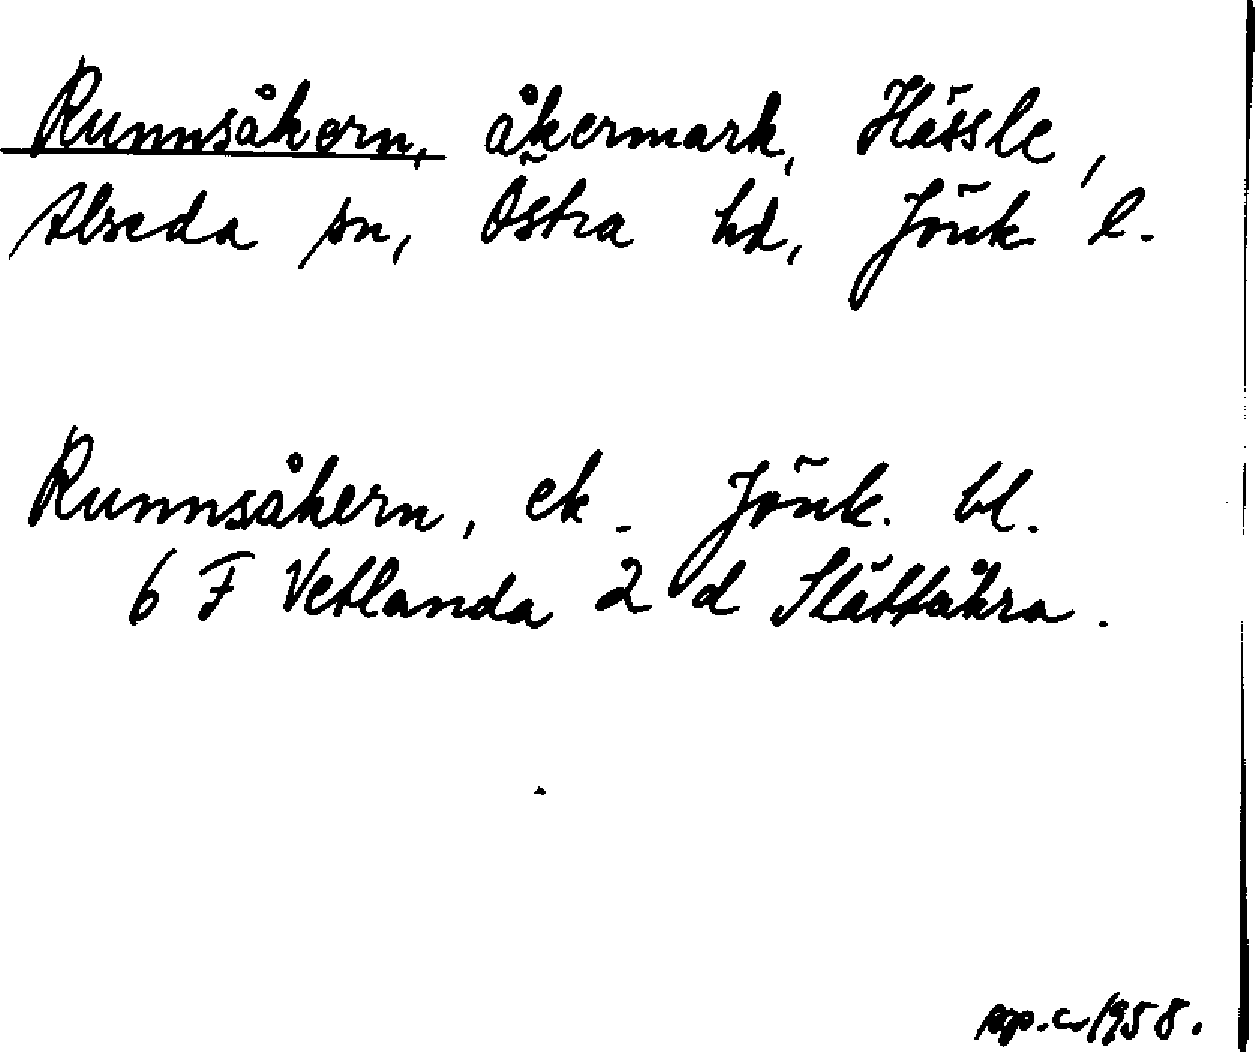 Runnsåkern, åkermark, Hässle,
Alseda sn, Östra hd, Jönk l.
Runnsåkern, ek. Jönk. bl.
6 F Vetlanda 2 d Slättåkra.
1958.